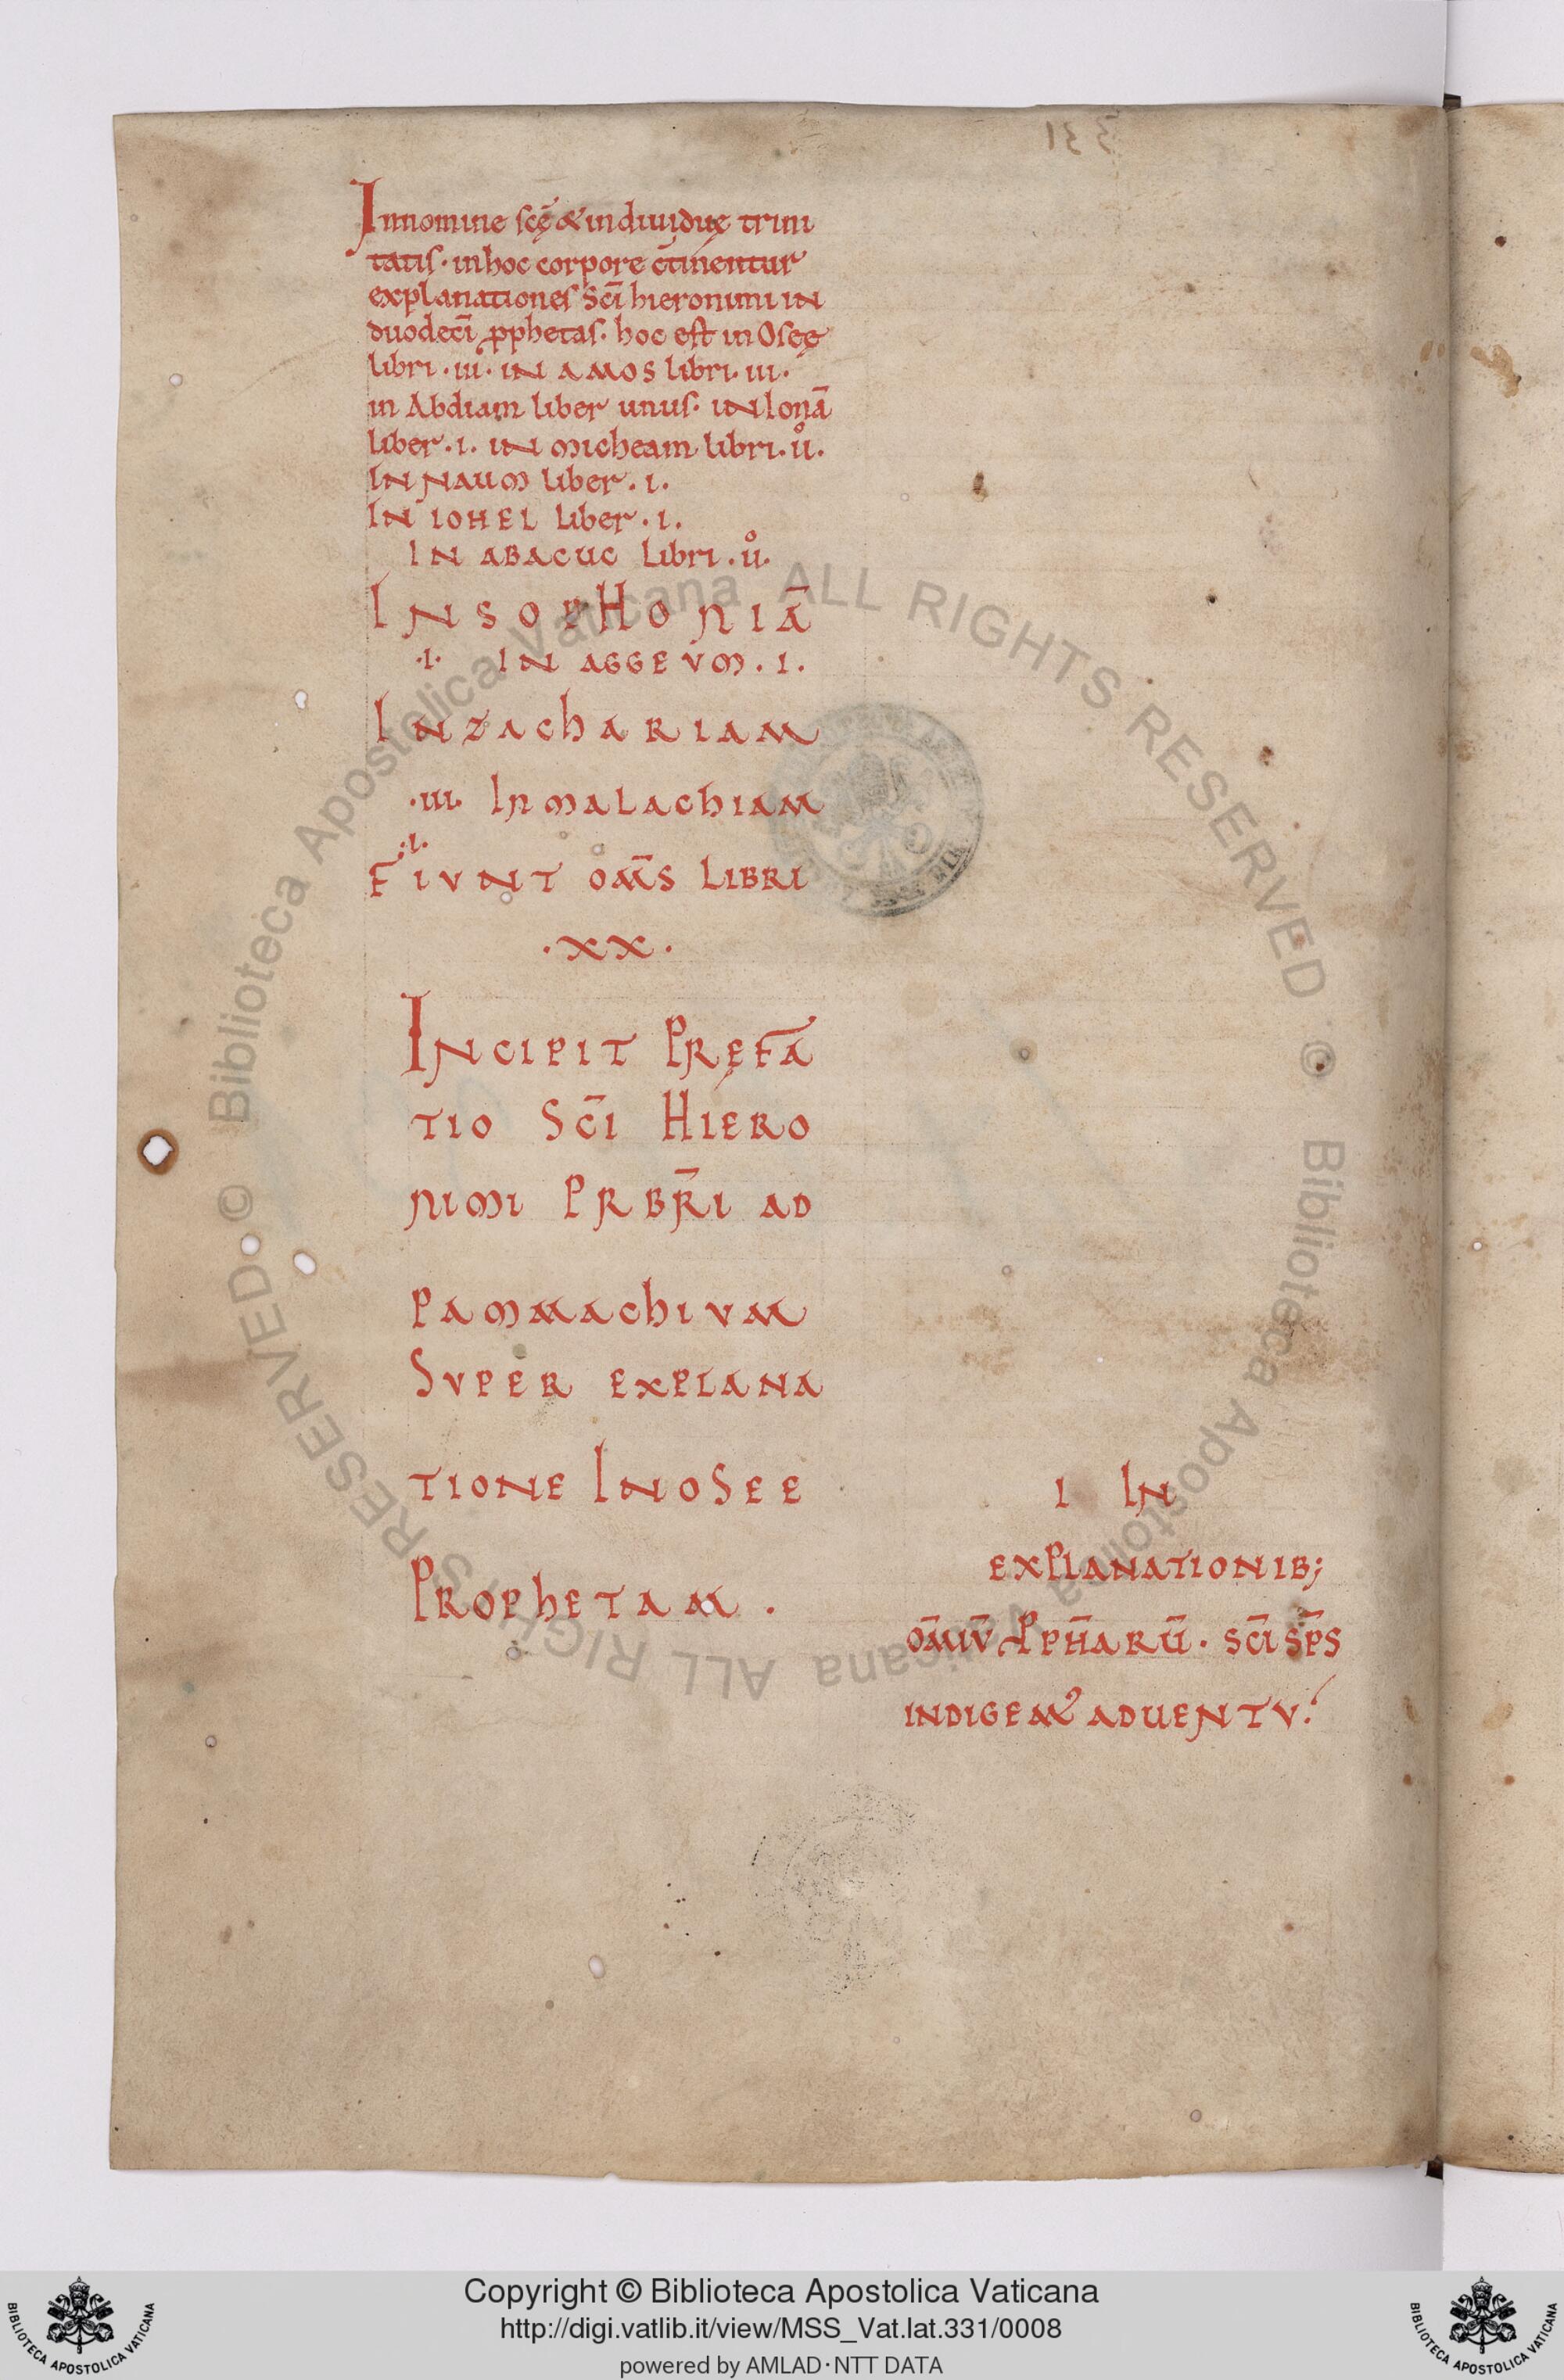 Innomine scę̄ & indiuiduę trini
tatis · inhoc corpore c̄tinentur
explanationes Sc̄i hieronimi in
duodecī ꝓphetas · hoc est in Oseę
libri · iii · in amos libri · iii ·
in Abdiam liber unus · in Ionā
liber · i · in micheam libri · ůı ·
In naum liber · i ·
In iohel liber · i ·
In abacuc libri · ůı ·
In sophoniā
· i · In aggeum · i ·
In zachariam
· iii · In malachiam
· i ·
Fiunt om̄s libri
· xx ·
Incipit Pręfa
tio Sc̄i Hiero
nimi Prbr̄i ad
pammachium
Super explana
tione In osee
Prophetam ·
i In
explanationib;
om̄iū ꝓph̄arū · sc̄i sp̄s
indigem& aduentu
331
Copyright © Biblioteca Apostolica Vaticana
http://digi.vatlib.it/view/MSS_Vat.lat.331/0008
powered by AMLAD·NTT DATA
BIBLIOTECA APOSTOLICA VATICANA
BIBLIOTECA APOSTOLICA VATICANA
© Biblioteca Apostolica Vaticana ALL RIGHTS RESERVED © Biblioteca Apostolica Vaticana ALL RIGHTS RESERVED